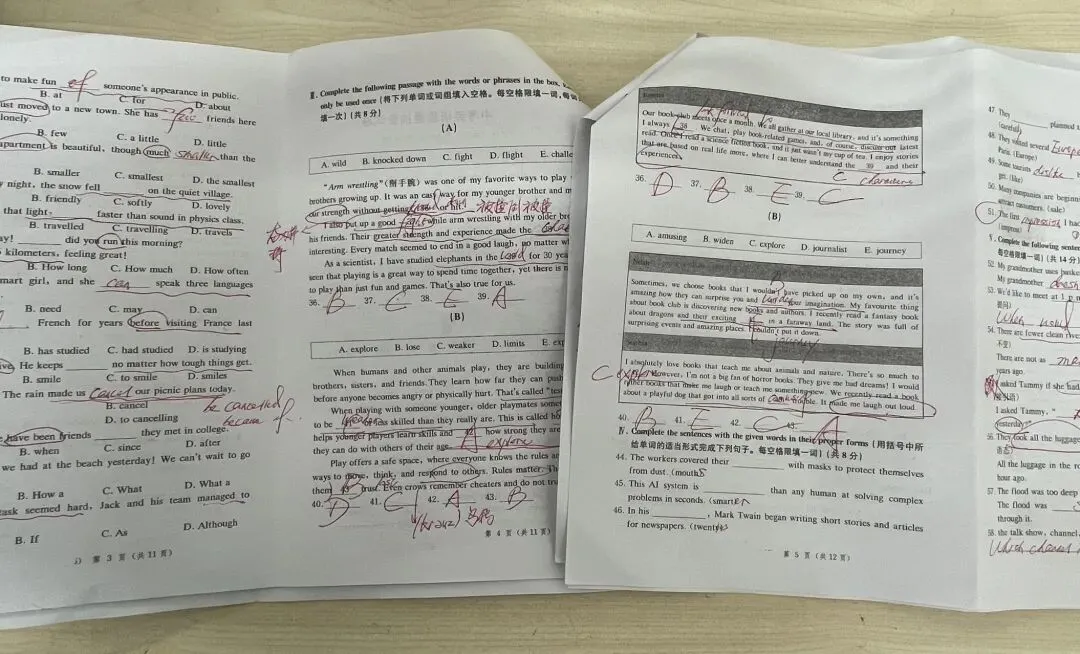 to make fun of someone's appearance in public.
B. at C. for D. about
ust moved to a new town. She has few friends here
lonely.
B. few C. a little D. little
apartment is beautiful, though much smaller than the
B. smaller C. smallest D. the smallest
y night, the snow fell on the quiet village.
B. friendly C. softly D. lovely
that light, faster than sound in physics class.
B. travelled C. travelling D. travels
ay! did you run this morning?
kilometers, feeling great!
B. How long C. How much D. How often
mart girl, and she can speak three languages
B. need C. may D. can
French for years before visiting France last
B. has studied C. had studied D. is studying
ive. He keeps no matter how tough things get.
B. smile C. to smile D. smiles
The rain made us cancel our picnic plans today.
B. cancel be cancelled
D. to cancelling because of
have been friends they met in college.
B. when C. since D. after
we had at the beach yesterday! We can't wait to go
B. How a C. What D. What a
task seemed hard, Jack and his team managed to
B. If C. As D. Although
第 3 页 (共 11 页)
II. Complete the following passage with the words or phrases in the box.
only be used once (将下列单词或词组填入空格。每空格限填一词,每词
填一次) (共 8 分)
(A)
A. wild B. knocked down C. fight D. flight E. challe
"Arm wrestling" (掰手腕) was one of my favorite ways to play
brothers growing up. It was an easy way for my younger brother and m
our strength without getting or hit. 被撞
I also put up a good fight while arm wrestling with my older bro
his friends. Their greater strength and experience made the
interesting. Every match seemed to end in a good laugh, no matter w
As a scientist, I have studied elephants in the for 30 yea
seen that playing is a great way to spend time together, yet there is n
to play than just fun and games. That's also true for us.
36. B 37. C 38. E 39. A
(B)
A. explore B. lose C. weaker D. limits E. exp
When humans and other animals play, they are building
brothers, sisters, and friends. They learn how far they can push
before anyone becomes angry or physically hurt. That's called "test
When playing with someone younger, older playmates somet
to be less skilled than they really are. This is called
helps younger players learn skills and A how strong they are
they can do with others of their age. explore
Play offers a safe space, where everyone knows the rules an
ways to move, think, and respond to others. Rules matter. Th
them 43 trust. Even crows remember cheaters and do not tru
40. D 41. C 42. A 43. B
第 4 页 (共 11 页)
Our book club meets once a month. We all gather at our local library, and it's something
I always 38 We chat, play book-related games, and, of course, discuss our latest
read. Once I read a science fiction book, and it just wasn't my cup of tea. I enjoy stories
that are based on real life more, where I can better understand the 39 and their
experiences.
36. D 37. B 38. E 39. C
(B)
A. amusing B. widen C. explore D. journalist E. journey
Sometimes, we choose books that I wouldn't have picked up on my own, and it's
amazing how they can surprise you and our imagination. My favourite thing
about book club is discovering new books and authors. I recently read a fantasy book
about dragons and their exciting E in a faraway land. The story was full of
surprising events and amazing places. I couldn't put it down.
journey
I absolutely love books that teach me about animals and nature. There's so much to
C explore However, I'm not a big fan of horror books. They give me bad dreams! I would
rather books that make me laugh or teach me something new. We recently read a book
about a playful dog that got into all sorts of trouble. It made me laugh out loud.
40. B 41. E 42. C 43. A
IV. Complete the sentences with the given words in their proper forms (用括号中所
给单词的适当形式完成下列句子。每空格限填一词) (共 8 分)
44. The workers covered their with masks to protect themselves
from dust. (mouth)
45. This AI system is than any human at solving complex
problems in seconds. (smart)
46. In his , Mark Twain began writing short stories and articles
for newspapers. (twenty)
第 5 页 (共 12 页)
47. They planned t
(careful)
48. They visited several Europe
Paris. (Europe)
49. Some tourists dislike
get. (like)
50. Many companies are beginni
attract customers. (sale)
51. The first impression I had
(impress)
V. Complete the following senten
每空格限填一词) (共 14 分)
52. My grandmother uses
My grandmother doesn
53. We'd like to meet at 1 p.m
When would
54. There are fewer clean river
不变)
There are not as
years ago.
asked Tammy if she had
I asked Tammy, "
yesterday?"
56. They took all the luggage
All the luggage in the ro
hour ago.
57. The flood was too deep
The flood was
through it.
58. the talk show, channel,
Which channel